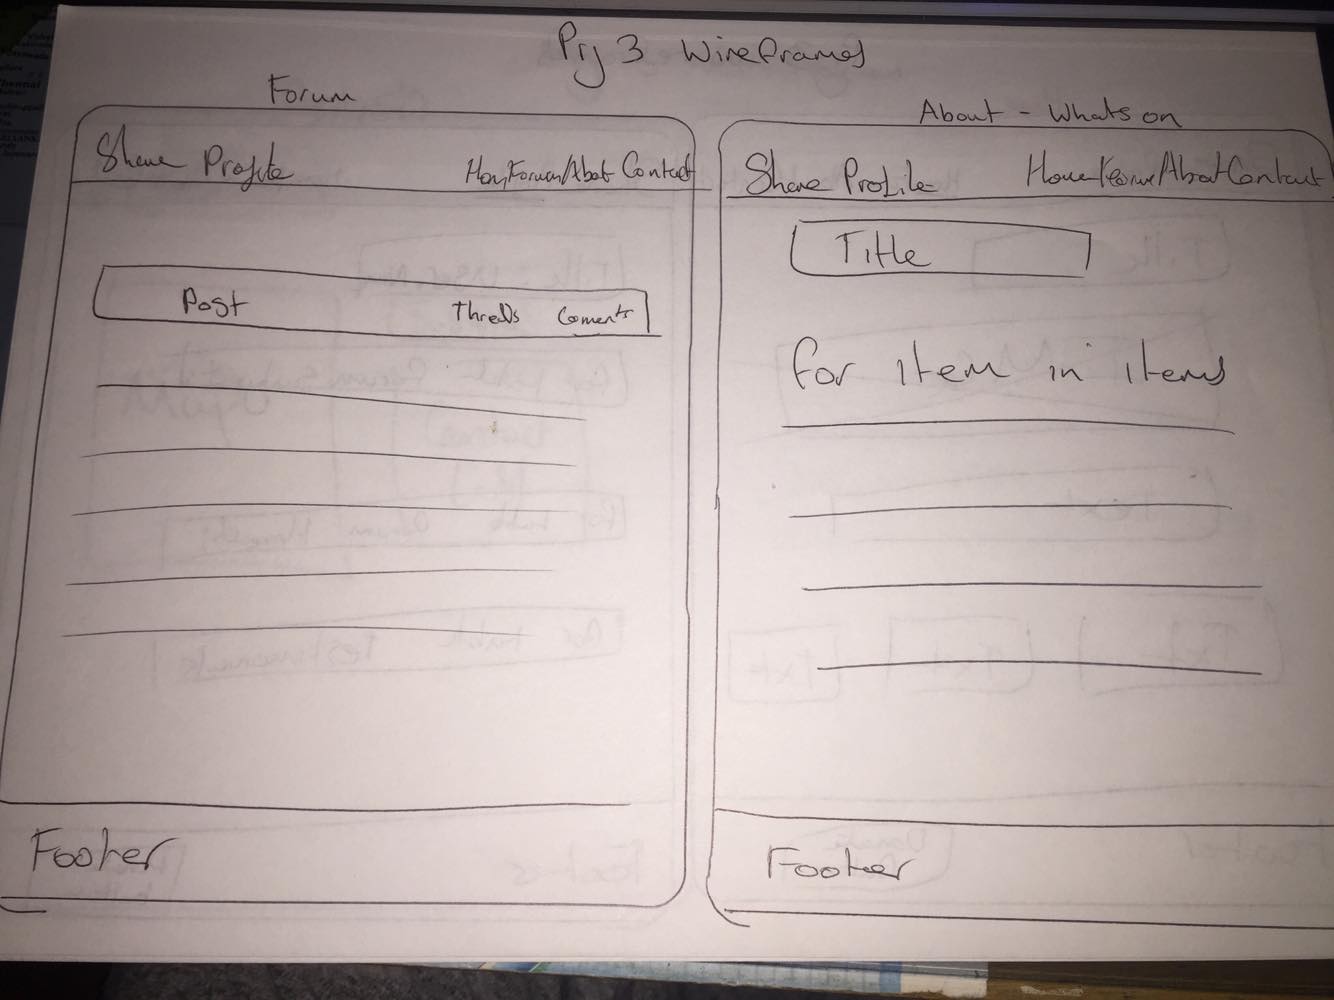 Prj 3 Wireframes
Forum
Share Profile Home/Forum/About Contact
Post Threds Coments
Footer
About - Whats on
Share Profile Home/Forum/About Contact
Title
for item in items
Footer